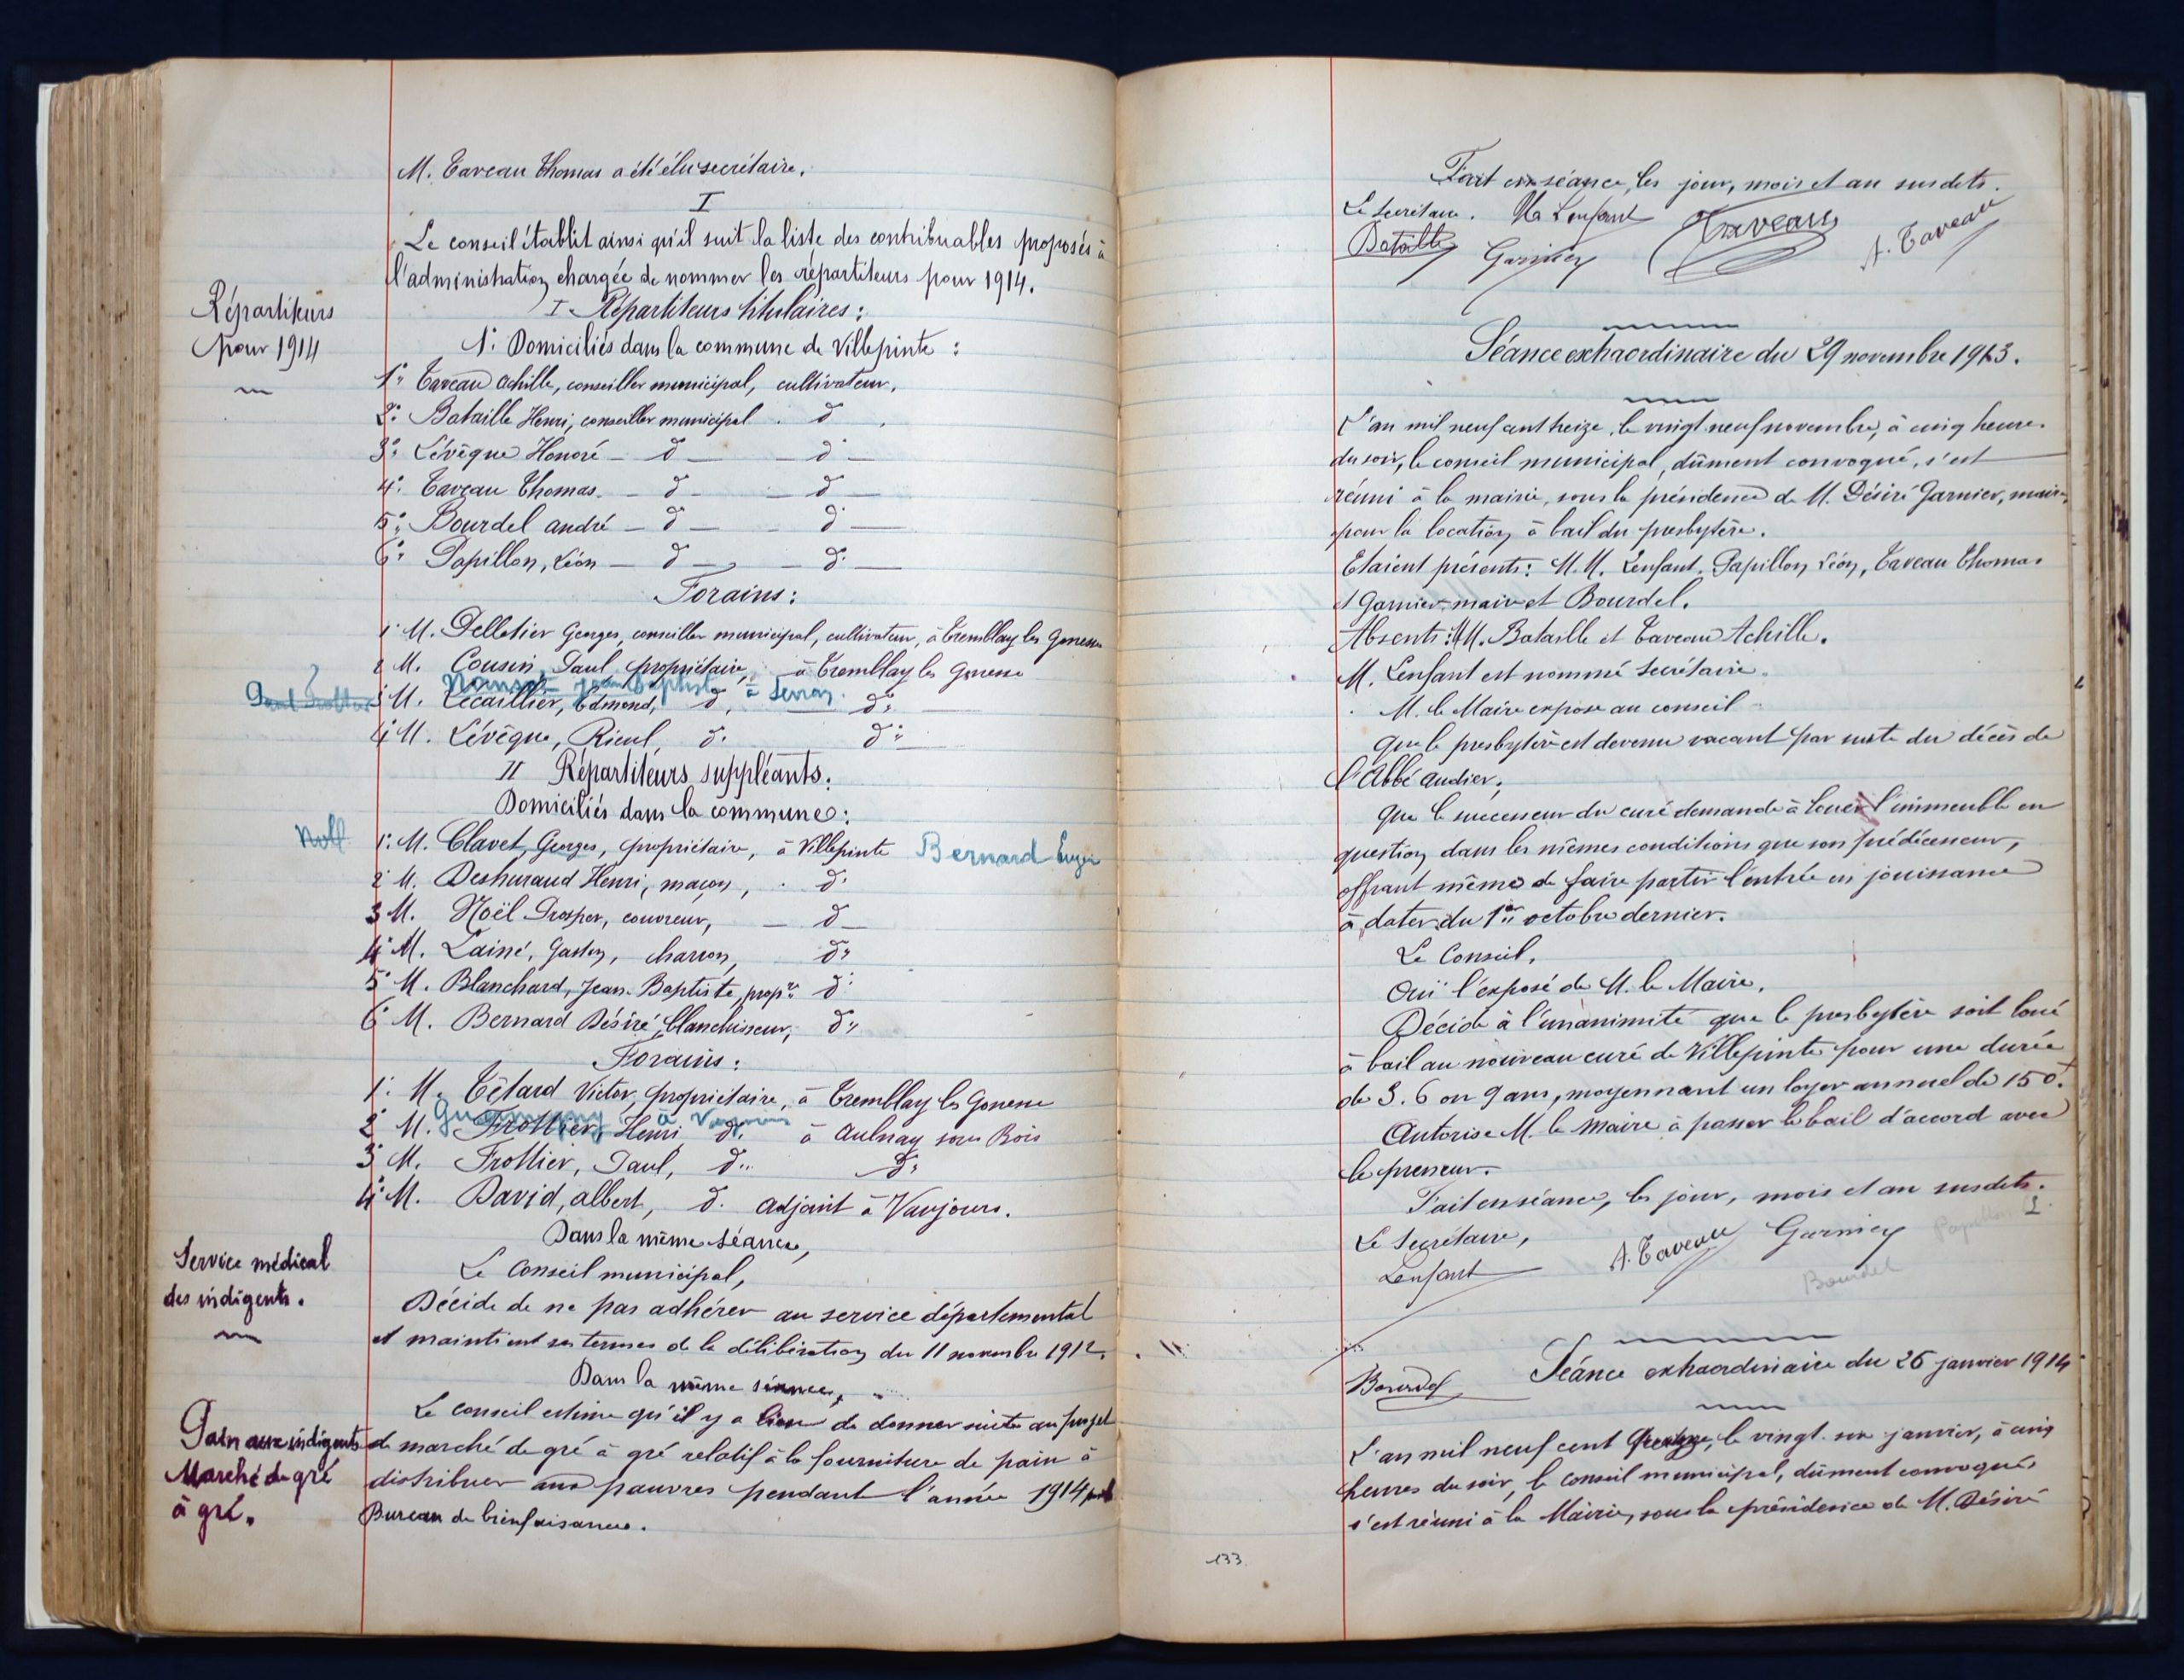 M. Taveau Thomas a été élu secrétaire.
I
Le conseil établit ainsi qu'il suit la liste des contribuables proposés à
l'administration chargée de nommer les répartiteurs pour 1914.
Répartiteurs
pour 1914
I - Répartiteurs titulaires :
1° Domiciliés dans la commune de Villepinte :
1° Taveau Achille, conseiller municipal, cultivateur.
2° Bataille Henri, conseiller municipal d°
3° Lévêque Honoré - d° - d° -
4° Taveau Thomas - d° - d° -
5° Bourdel André - d° - d° -
6° Papillon, Léon - d° - d° -
Forains :
1° M. Pelletier Georges, conseiller municipal, cultivateur, à Tremblay les Gonesse
2 M. Cousin Paul, propriétaire, à Tremblay les Gonesse
Jean Baptiste à Sevran.
3° M. Lécaillier, Edmond, d° d°
4° M. Lévêque, Rieul, d° d°
II Répartiteurs suppléants.
Domiciliés dans la commune :
1° M. Clavet, Georges, propriétaire, à Villepinte Bernard
2° M. Deshuraud Henri, maçon, d°
3 M. Noël Prosper, couvreur, - d° -
4° M. Lainé, Gaston, charron, d°
5° M. Blanchard, Jean-Baptiste, prop.re d°
6° M. Bernard Désiré, blanchisseur, d°
Forains :
1° M. Têtard Victor, propriétaire, à Tremblay les Gonesse
2° M. Frottier, Henri, d° à Aulnay sous Bois
3° M. Frottier, Paul, d° d°
4° M. David, Albert, d° adjoint à Vaujours.
Dans la même séance,
Service médical
des indigents.
Le Conseil municipal,
Décide de ne pas adhérer au service départemental
et maintient ses termes de la délibération du 11 novembre 1912.
Dans la même séance,
Pain aux indigents
Marché de gré
à gré.
Le conseil estime qu'il y a lieu de donner suite au projet
de marché de gré à gré relatif à la fourniture de pain à
distribuer aux pauvres pendant l'année 1914
Bureau de bienfaisance.
Fait en séance, les jour, mois et an susdits.
Le Secrétaire. Lenfant Taveau A. Taveau
Bataille Garnier
Séance extraordinaire du 29 novembre 1913.
L'an mil neuf cent treize, le vingt neuf novembre, à cinq heures
du soir, le conseil municipal, dûment convoqué, s'est
réuni à la mairie, sous la présidence de M. Désiré Garnier, maire,
pour la location à bail du presbytère.
Etaient présents : M.M. Lenfant, Papillon Léon, Taveau Thomas
et Garnier maire et Bourdel.
Absents : MM. Bataille et Taveau Achille.
M. Lenfant est nommé secrétaire.
M. le Maire expose au conseil
que le presbytère est devenu vacant par suite du décès de
l'Abbé Audier ;
que le successeur du curé demande à louer l'immeuble en
question dans les mêmes conditions que son prédécesseur,
offrant même de faire partir l'entrée en jouissance
à dater du 1er octobre dernier.
Le Conseil,
Ouï l'exposé de M. le Maire,
Décide à l'unanimité que le presbytère soit loué
à bail au nouveau curé de Villepinte pour une durée
de 3. 6 ou 9 ans, moyennant un loyer annuel de 150f.
Autorise M. le Maire à passer le bail d'accord avec
le preneur.
Fait en séance, les jour, mois et an susdits.
Le Secrétaire, A. Taveau Garnier Papillon L
Lenfant Bourdel
Bourdel
Séance extraordinaire du 26 janvier 1914
L'an mil neuf cent quatorze, le vingt six janvier, à cinq
heures du soir, le conseil municipal, dûment convoqué,
s'est réuni à la Mairie, sous la présidence de M. Désiré
133